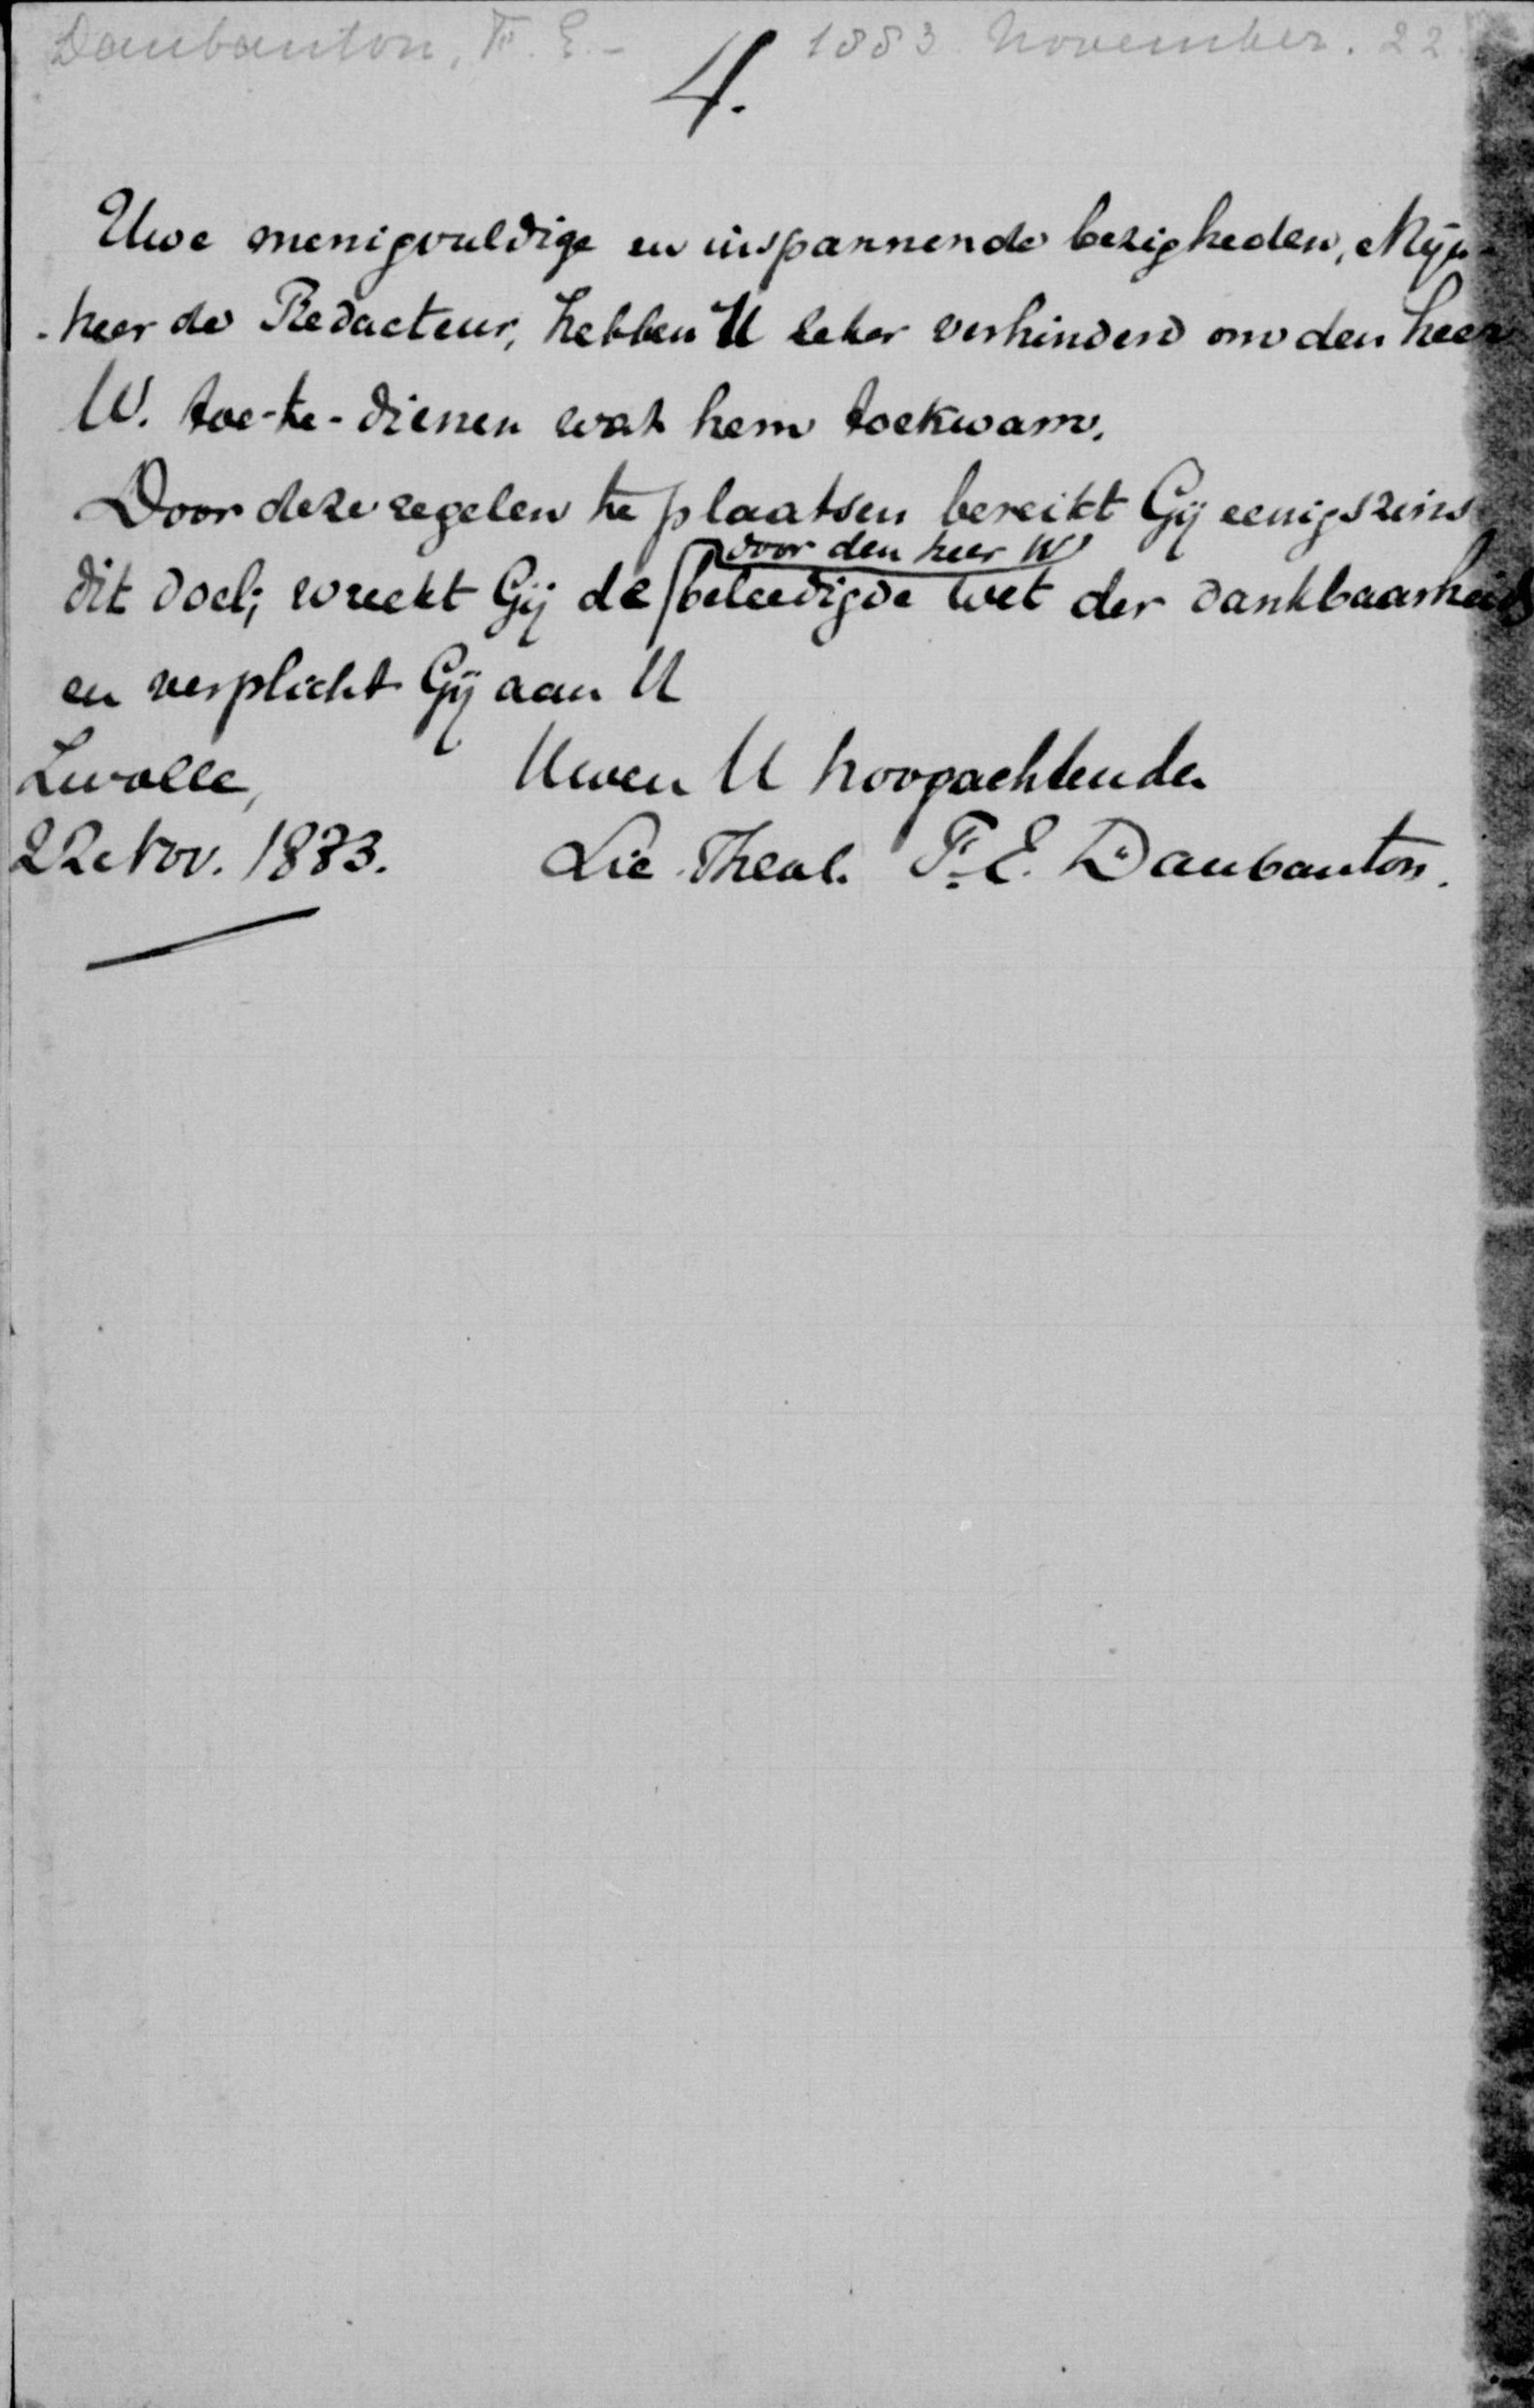 Daubanton, F. E. - 1883 November. 22
4.
Uwe menigvuldige en inspannende bezigheden, Mijn-
-heer de Redacteur, hebben U zeker verhinderd om den heer
W. toe-te-dienen wat hem toekwam.
Door deze regelen te plaatsen bereikt Gij eenigszins
door den heer W
dit doel; wreekt Gij de beleedigde wet der dankbaarheid
en verplicht Gij aan U
Zwolle, Uwen U hoogachtenden
22 Nov. 1883. Lic. Theol. F. E. Daubanton.